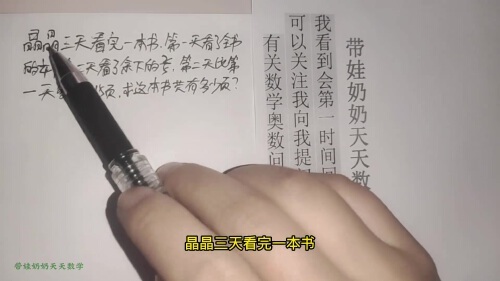 晶晶三天看完一本书,第一天看了全书
的 第二天看了余下的 第二天比第
一天 15页,求这本书共有多少页?
带娃奶奶天天数
我看到会第一时间回
可以关注我向我提
有关数学奥数问
晶晶三天看完一本书
带娃奶奶天天数学